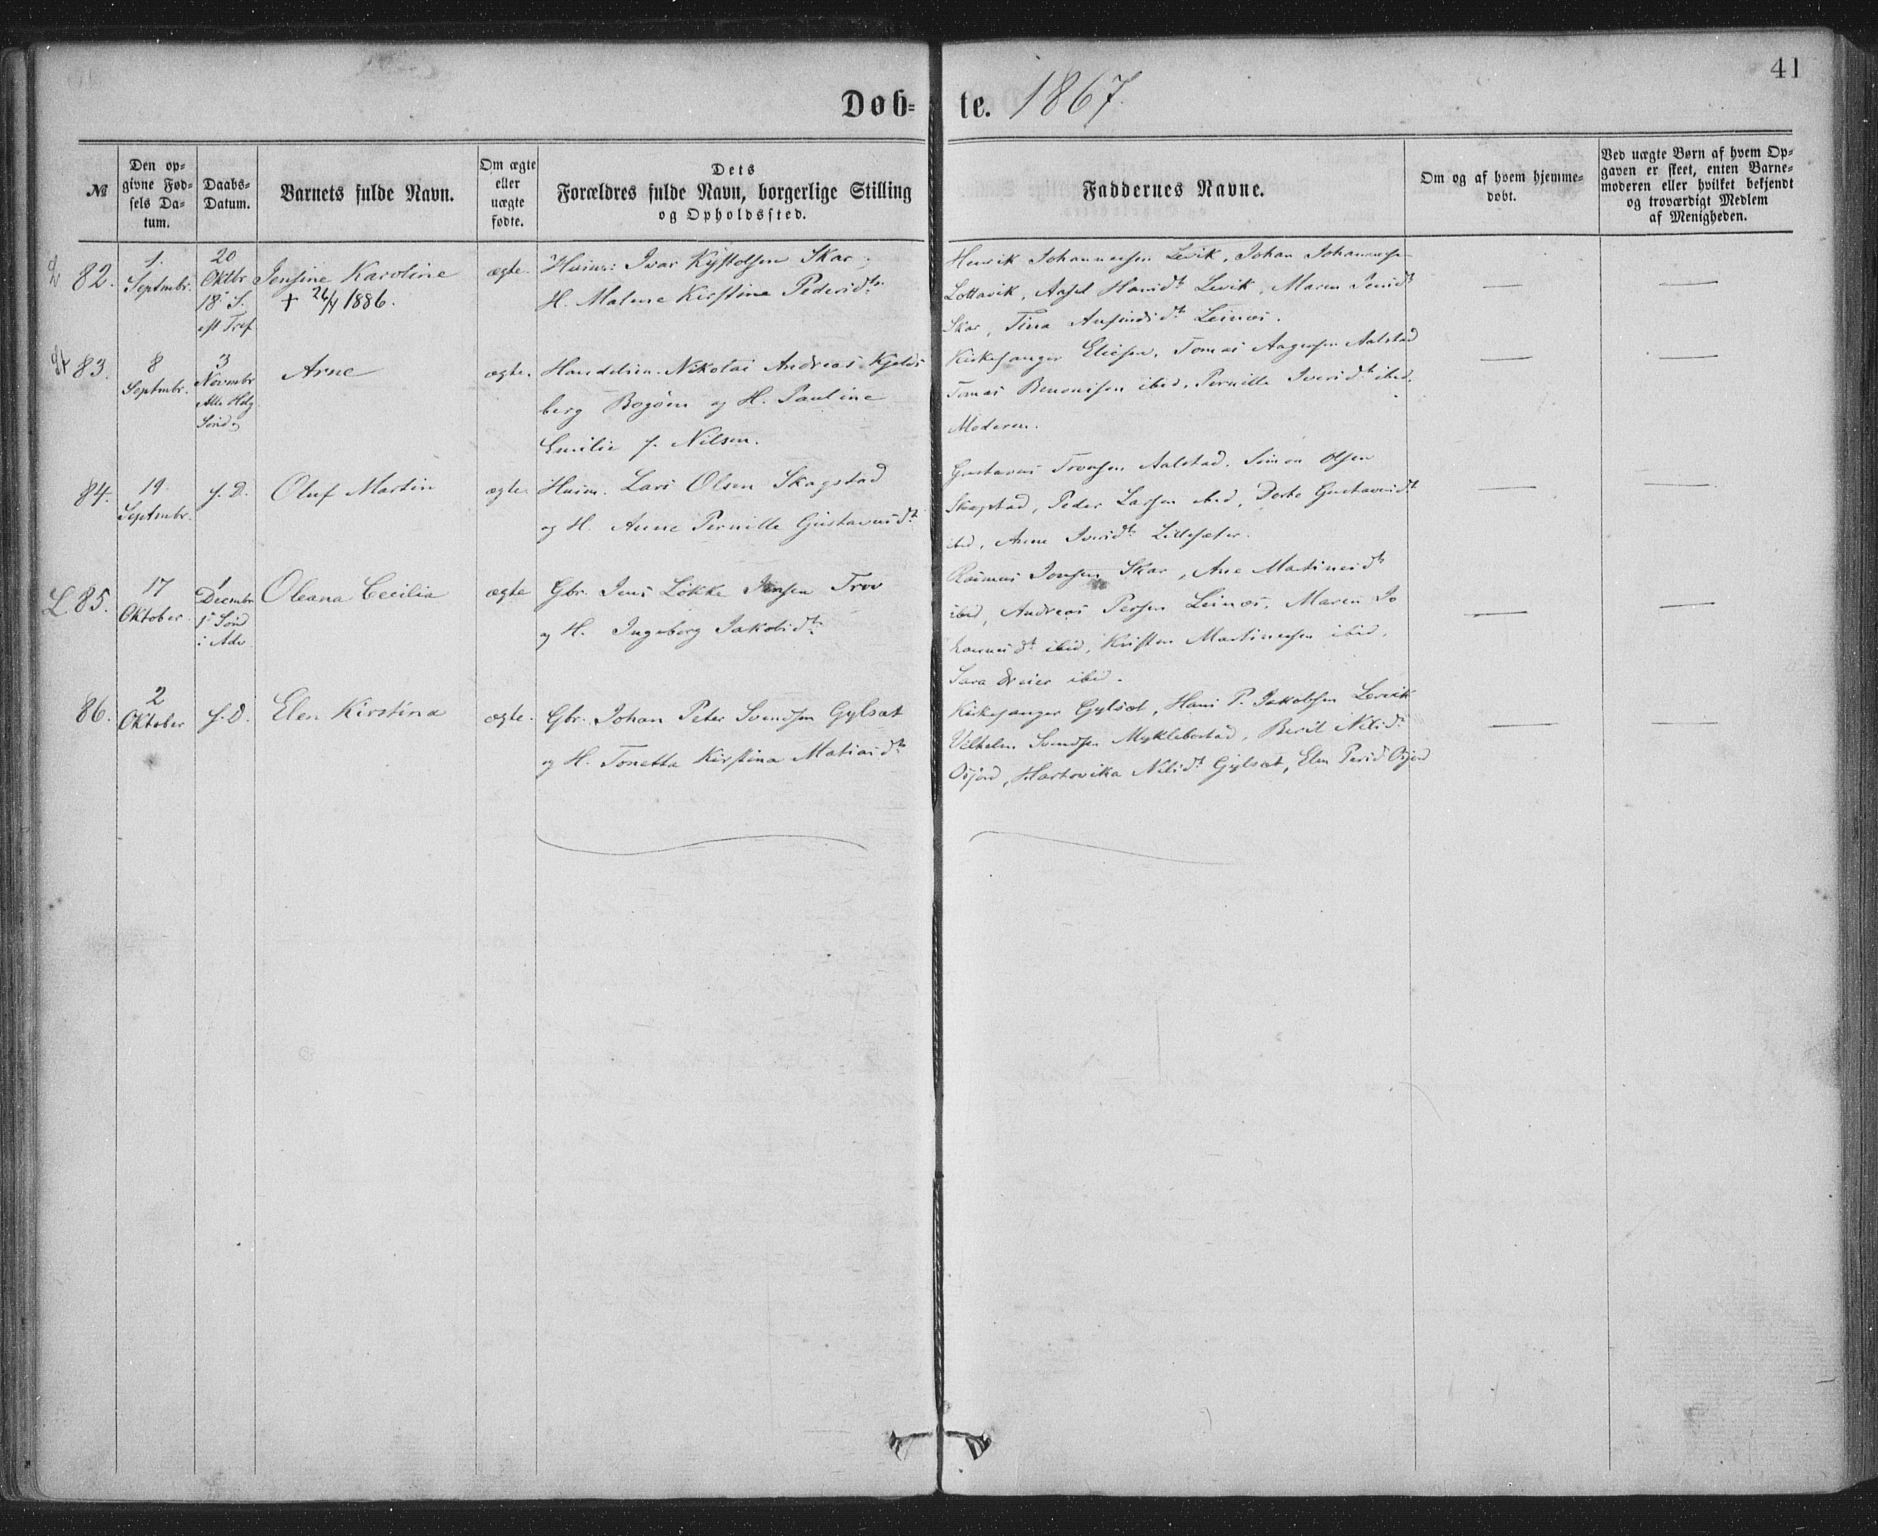 41
Døb- te. 1867.
№
Den op-
givne Fød-
sels Da-
tum.
Daabs-
Datum.
Barnets fulde Navn.
Om ægte
eller
uægte
fødte.
Dets
Forældres fulde Navn, borgerlige Stilling
og Opholdssted.
Faddernes Navne.
Om og af hvem hjemme-
døbt.
Ved uægte Børn af hvem Op-
gaven er skeet, enten Barne-
moderen eller hvilket bekjendt
og troværdigt Medlem
af Menigheden.
82.
1.
Septmbr.
20
Oktbr
18 S.
eft Tref
Jensine Karoline
+ 26/4 1886.
ægte.
Huusm: Ivar Kystolsen Skar,
H. Malene Kirstine Pedersdtr.
Henrik Johannessen Levik, Johan Johannessen
Lottavik, Hansdt Levik, Maren Jensdt
Skar, Tina Leinæs.
83.
8
Septmbr.
3
Novmbr
Alle Helg
Sönd.
Arne
ægte.
Handelsm. Nikolai Andreas Kjelds
berg Bogöen og H. Pauline
Emilie f. Nilsen.
Kirkesanger Eliesen, Tomas Aagesen Aalstad
Tomas Benonisen ibid, Pernille Iversdt ibid,
Moderen.
84.
19
Septmbr.
s. D.
Oluf Martin
ægte.
Huusm. Lars Olsen Skagstad
og H. Anne Pernille Gustavusdt
Gustavus Tronsen Aalstad, Simon Olsen
Skagstad, Peder Larsen ibid, Dorte Gustavusdt
ibid, Anne Iversdt Lillesæter.
L 85.
17
Oktober
1
Decembr
1 Sönd
i Adv
Oleana Cecilia
ægte
Gbr. Jens Lökke Jensen Trov
og H. Ingeborg Jakobsdt
Rasmus Jonsen Skar, Ane Martinusdt
ibid, Andreas Persen Leinæs, Maren Jo
hannesdt ibid, Kristen Martinussen ibid,
Sara Dreier ibid.
86.
2
Oktober
s. D.
Elen Kirstina
ægte.
Gbr. Johan Peter Svendsen Gylsæt
og H. Tonetta Kirstina Matiasdt
Kirkesanger Gylsæt, Hans P. Jakobsen Lervik
Vilhelm Svendsen Myklebostad, Berit Nilsdt
Osjord, Hartovika Nilsdt Gylsæt, Elen Persdt Osjord